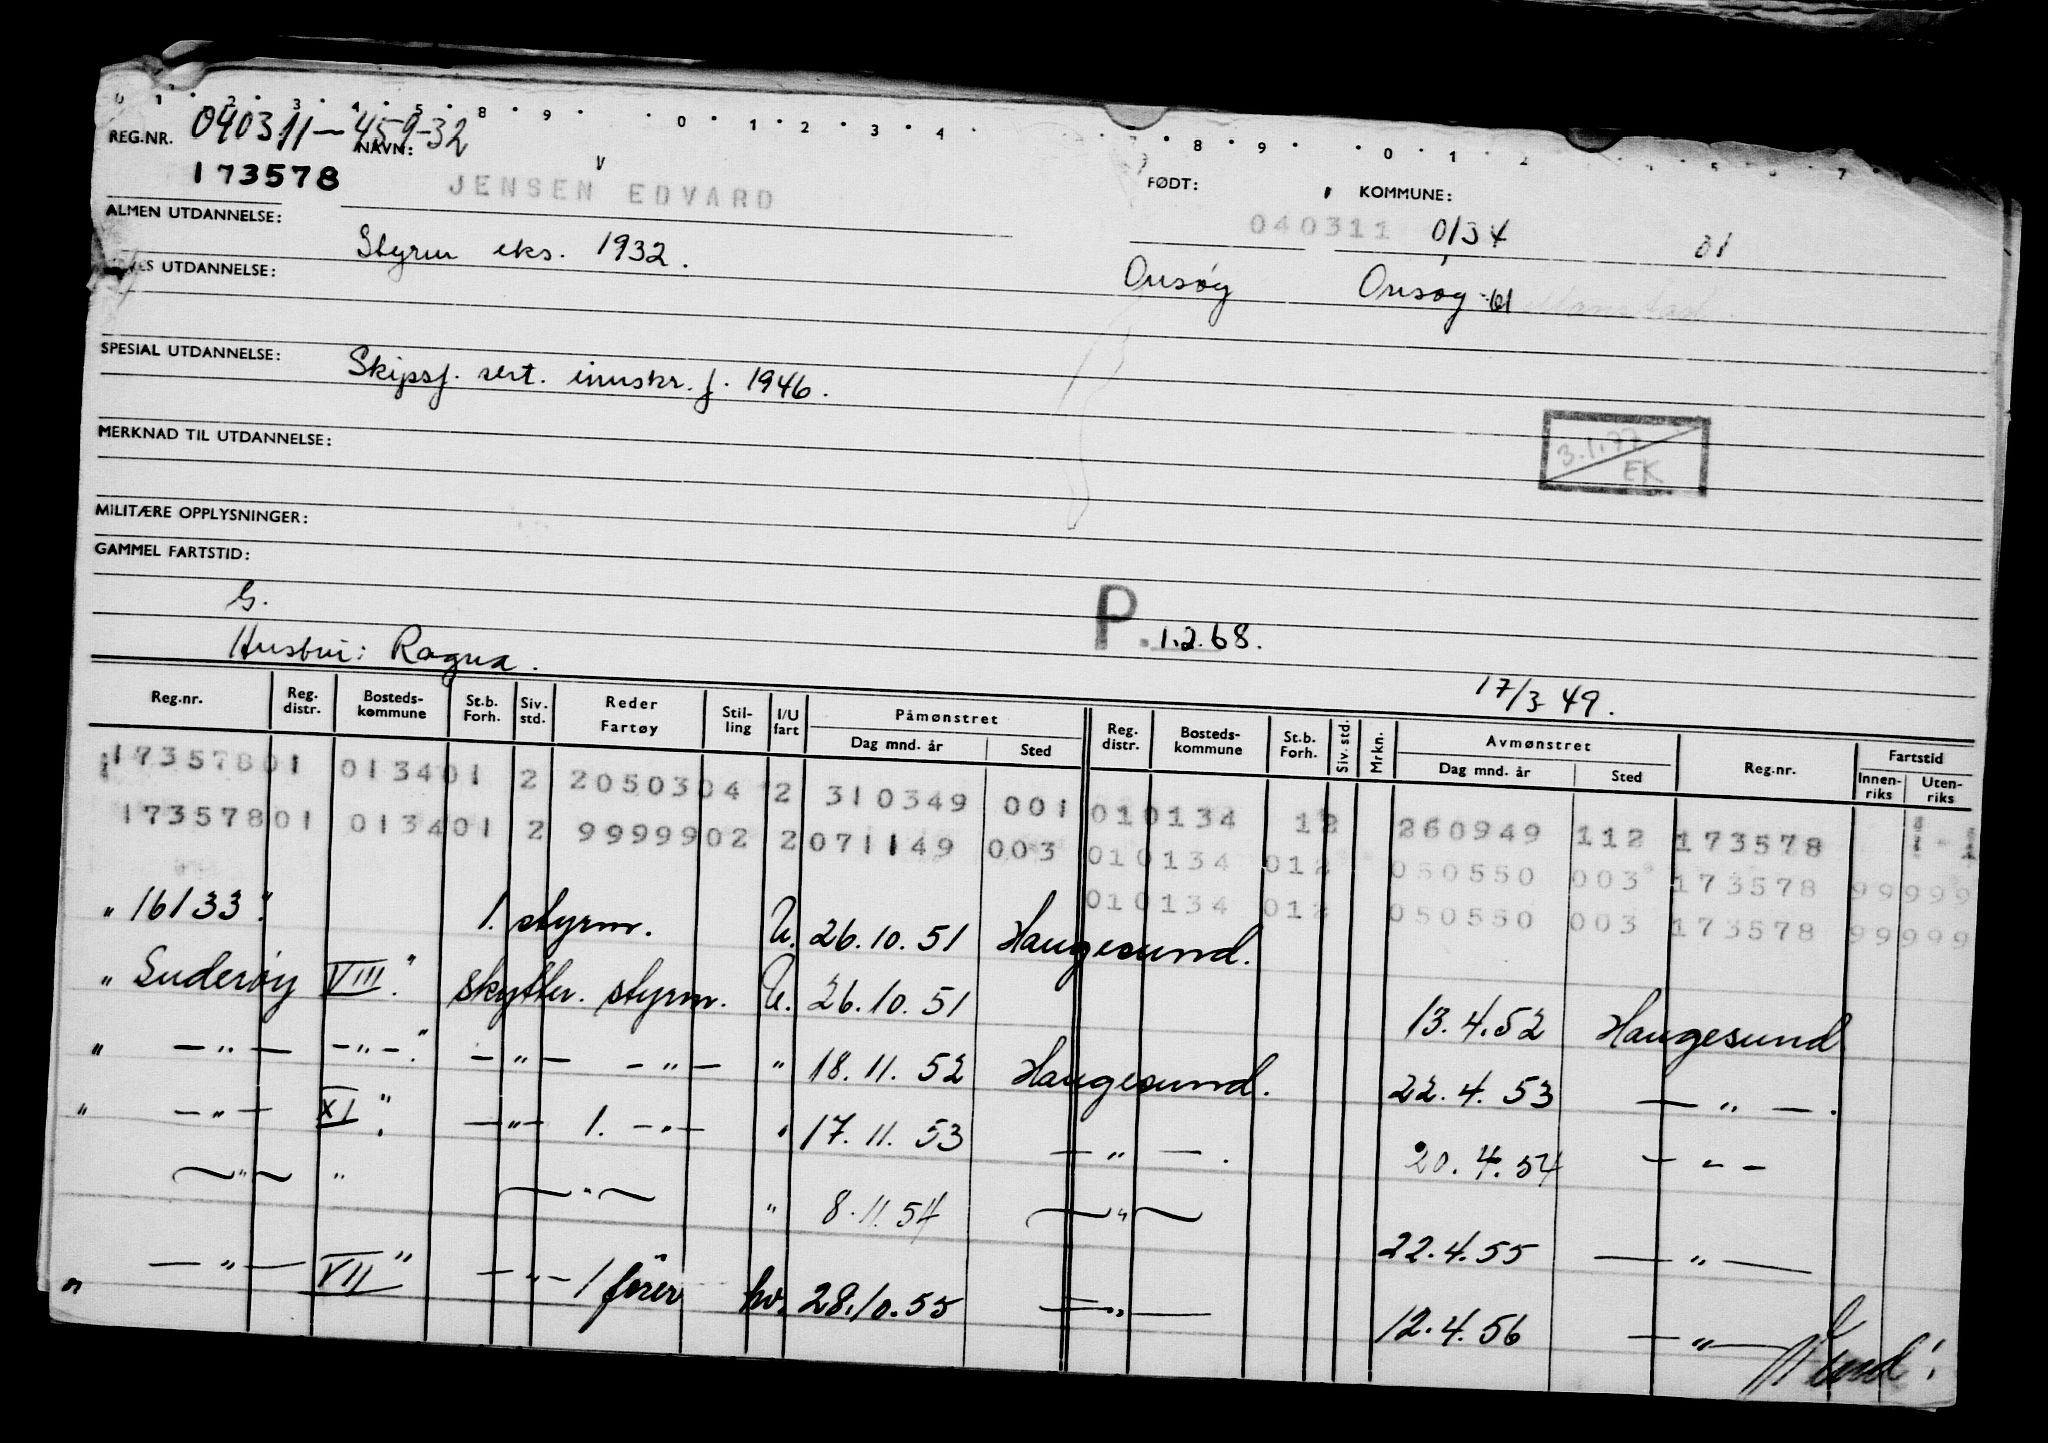 0 1 2 3 4 5 8 9 0 1 2 3 4 7 8 9 0 1 2 5 6 7
REG.NR. 040311-459-32 NAVN:
173578 JENSEN V EDVARD FØDT: KOMMUNE:
040311 0134 01
ALMEN UTDANNELSE: Styrm eks. 1932. Onsøy Onsøy
UTDANNELSE:
SPESIAL UTDANNELSE: Skipsf. sert. innskr. f. 1946.
3.1.77 EK
MERKNAD TIL UTDANNELSE:
MILITÆRE OPPLYSNINGER:
GAMMEL FARTSTID:
G.
P. 1.2.68.
Hustru: Ragna.
17/3 49.
Reg.nr. Reg. distr. Bosteds- kommune St.b. Forh. Siv. std. Reder Fartøy Stil- ling I/U fart Påmønstret Dag mnd. år Sted Reg. distr. Bosteds- kommune St.b. Forh. Siv. std. Mrkn. Avmønstret Dag mnd. år Sted Reg.nr. Fartstid Innen- riks Uten- riks
17357801 013401 2 2050304 2 310349 001 010134 12 260949 112 173578
17357801 013401 2 9999902 2 071149 003 010134 012 050550 003 173578 99999
010134 012 050550 003 173578 99999
" 16133." 1. styrm. U. 26.10.51 Haugesund.
" Suderøy VIII." skytter. styrm. U. 26.10.51 13.4.52 Haugesund
" —"— —"—." —"— —"— " 18.11.52 Haugesund. 22.4.53 —"—.
" —"— XI." —"— 1. —"— " 17.11.53 —"—. 20.4.54 —"—
—"— " —"— " 8.11.54 —"— 22.4.55 —"—
" —"— VII" —"— 1 fører hv. 28.10.55 —"— 12.4.56 —"—